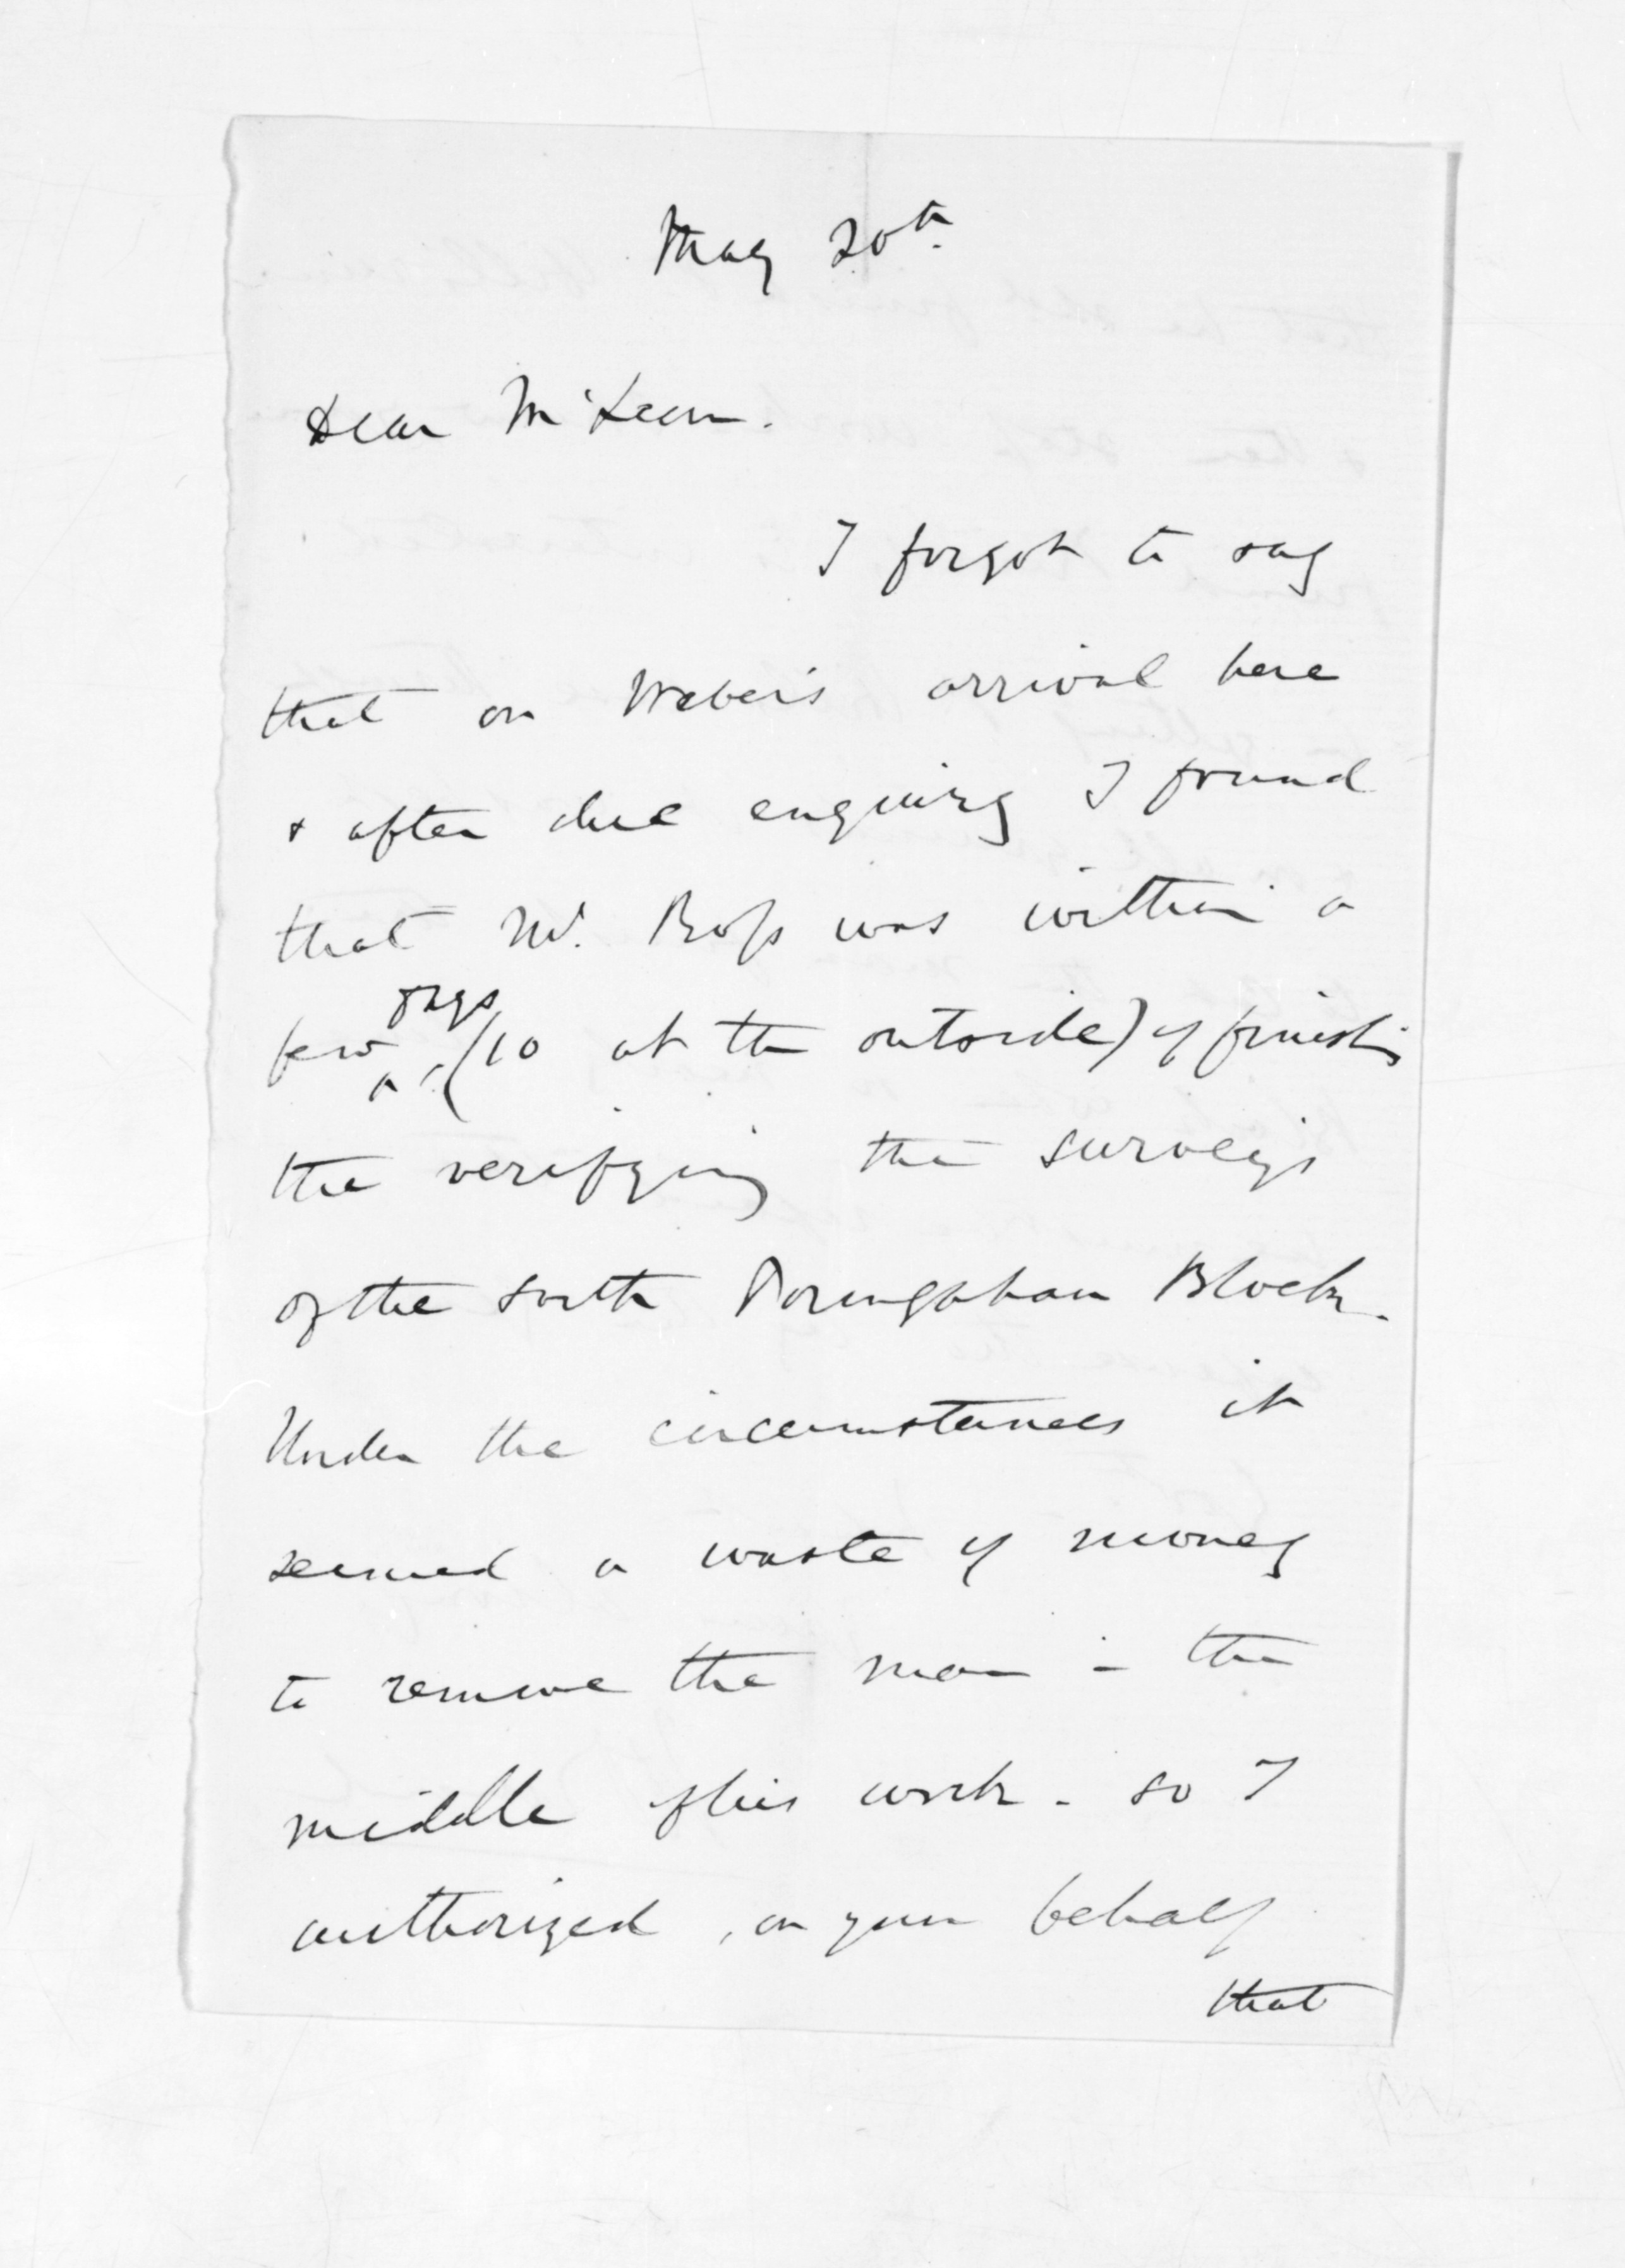 May 20th.
Dear McLean.
I forgot to say
that on Weber's arrival here
& after due enquiry I found
that Mr. Boss was within a
few days (10 at the outside) of finishing
the verifying the surveys
of the south Porungahau Block.
Under the circumstances it
seemed a waste of money
to remove the man in the
middle of his work - so I
authorized, on your behalf
that